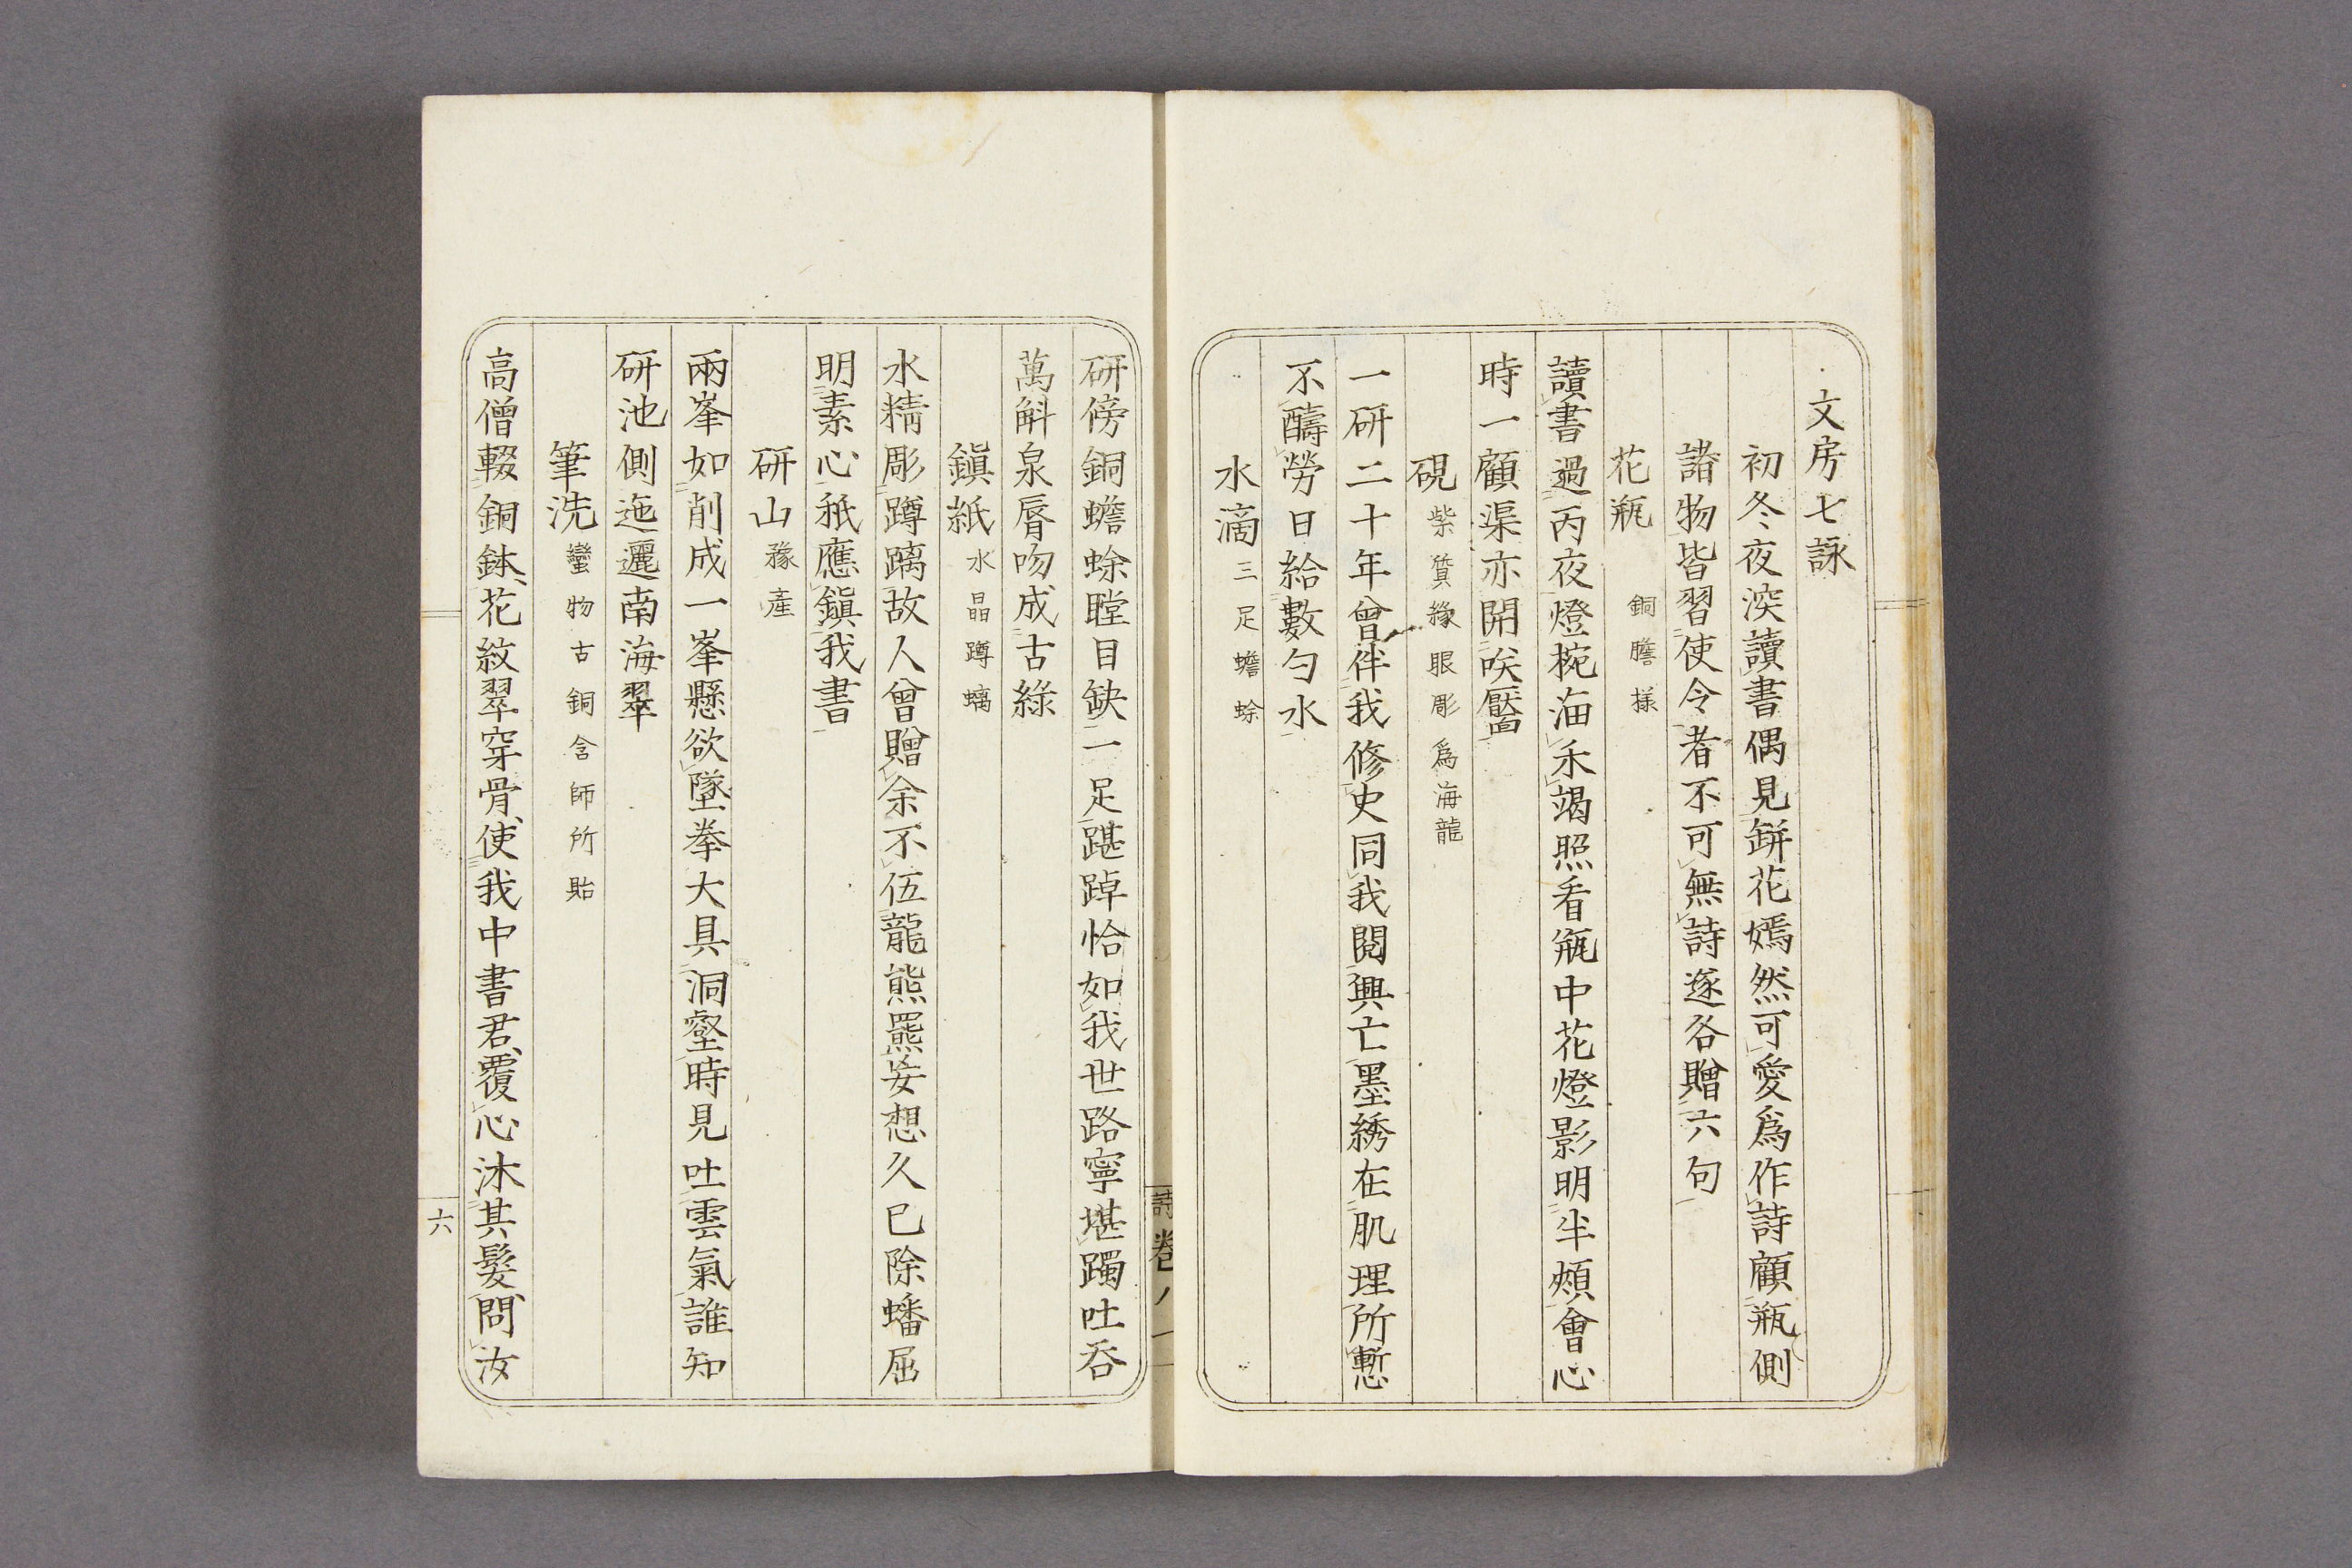 文房七詠
初冬夜深讀書偶見缾花嫣然可愛爲作詩顧瓶側
諸物皆習使令者不可無詩遂各贈六句
花瓶 銅膽樣
讀書過丙夜燈椀油未竭照看瓶中花燈影明半頰會心
時一顧渠亦開咲靨
硯 柴質綠眼彫爲海龍
一研二十年曾伴我修史同我閱興亡墨綉在肌理所慙
不醻勞日給數勺水
水滴 三足蟾蜍
研傍銅蟾蜍瞠目缺一足踸踔恰如我世路寧堪躅吐吞
萬斛泉脣吻成古綠
鎭紙 水晶蹲螭
水精彫蹲螭故人曾贈余不伍龍熊羆妄想久已除蟠屈
明素心秖應鎭我書
研山 豫產
兩峯如削成一峯懸欲墜拳大具洞壑時見吐雲氣誰知
研池側迤邐南海翠
筆洗 蠻物古銅含師所貽
高僧輟銅鉢花紋翠穿骨使我中書君覆心沐其髮問汝
詩 卷八
六